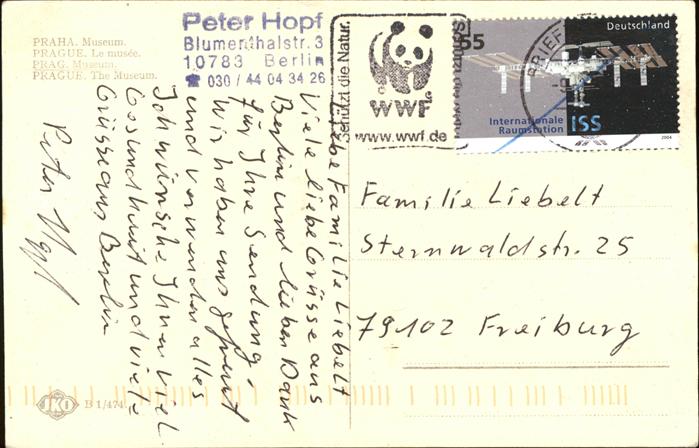 PRAHA. Museum.
PRAGUE. Le musée.
PRAG. Museum.
PRAGUE. The Museum.
Peter Hopf
Blumenthalstr. 3
10783 Berlin
☎ 030 / 44 04 34 26
Schützt die Natur.
WWF
www.wwf.de
55
Deutschland
Internationale
Raumstation
ISS
2004
BRIEF
Liebe Familie Liebelt
Viele liebe Grüsse aus
Berlin und lieben Dank
für Ihre Sendung,
Wir haben uns gefreut
und verwenden alles
Ich wünsche Ihnen viel
Gesundheit und viele
Grüsse aus Berlin
Peter Hopf
Familie Liebelt
Sternwaldstr. 25
79102 Freiburg
B 1/474